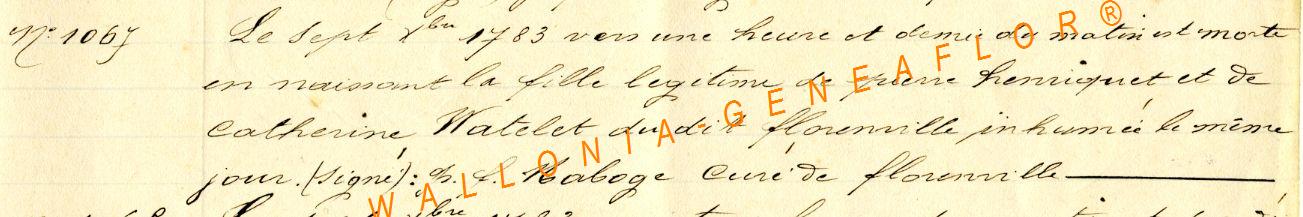 N° 1067 Le sept Xbre 1783 vers une heure et demie du matin est morte
en naissant la fille legitime de pierre henriquet et de
catherine Watelet du dit florenville, inhumée le même
jour. (signé): h. f. Maboge curé de florenville
WALLONIA-GENEAFLOR®